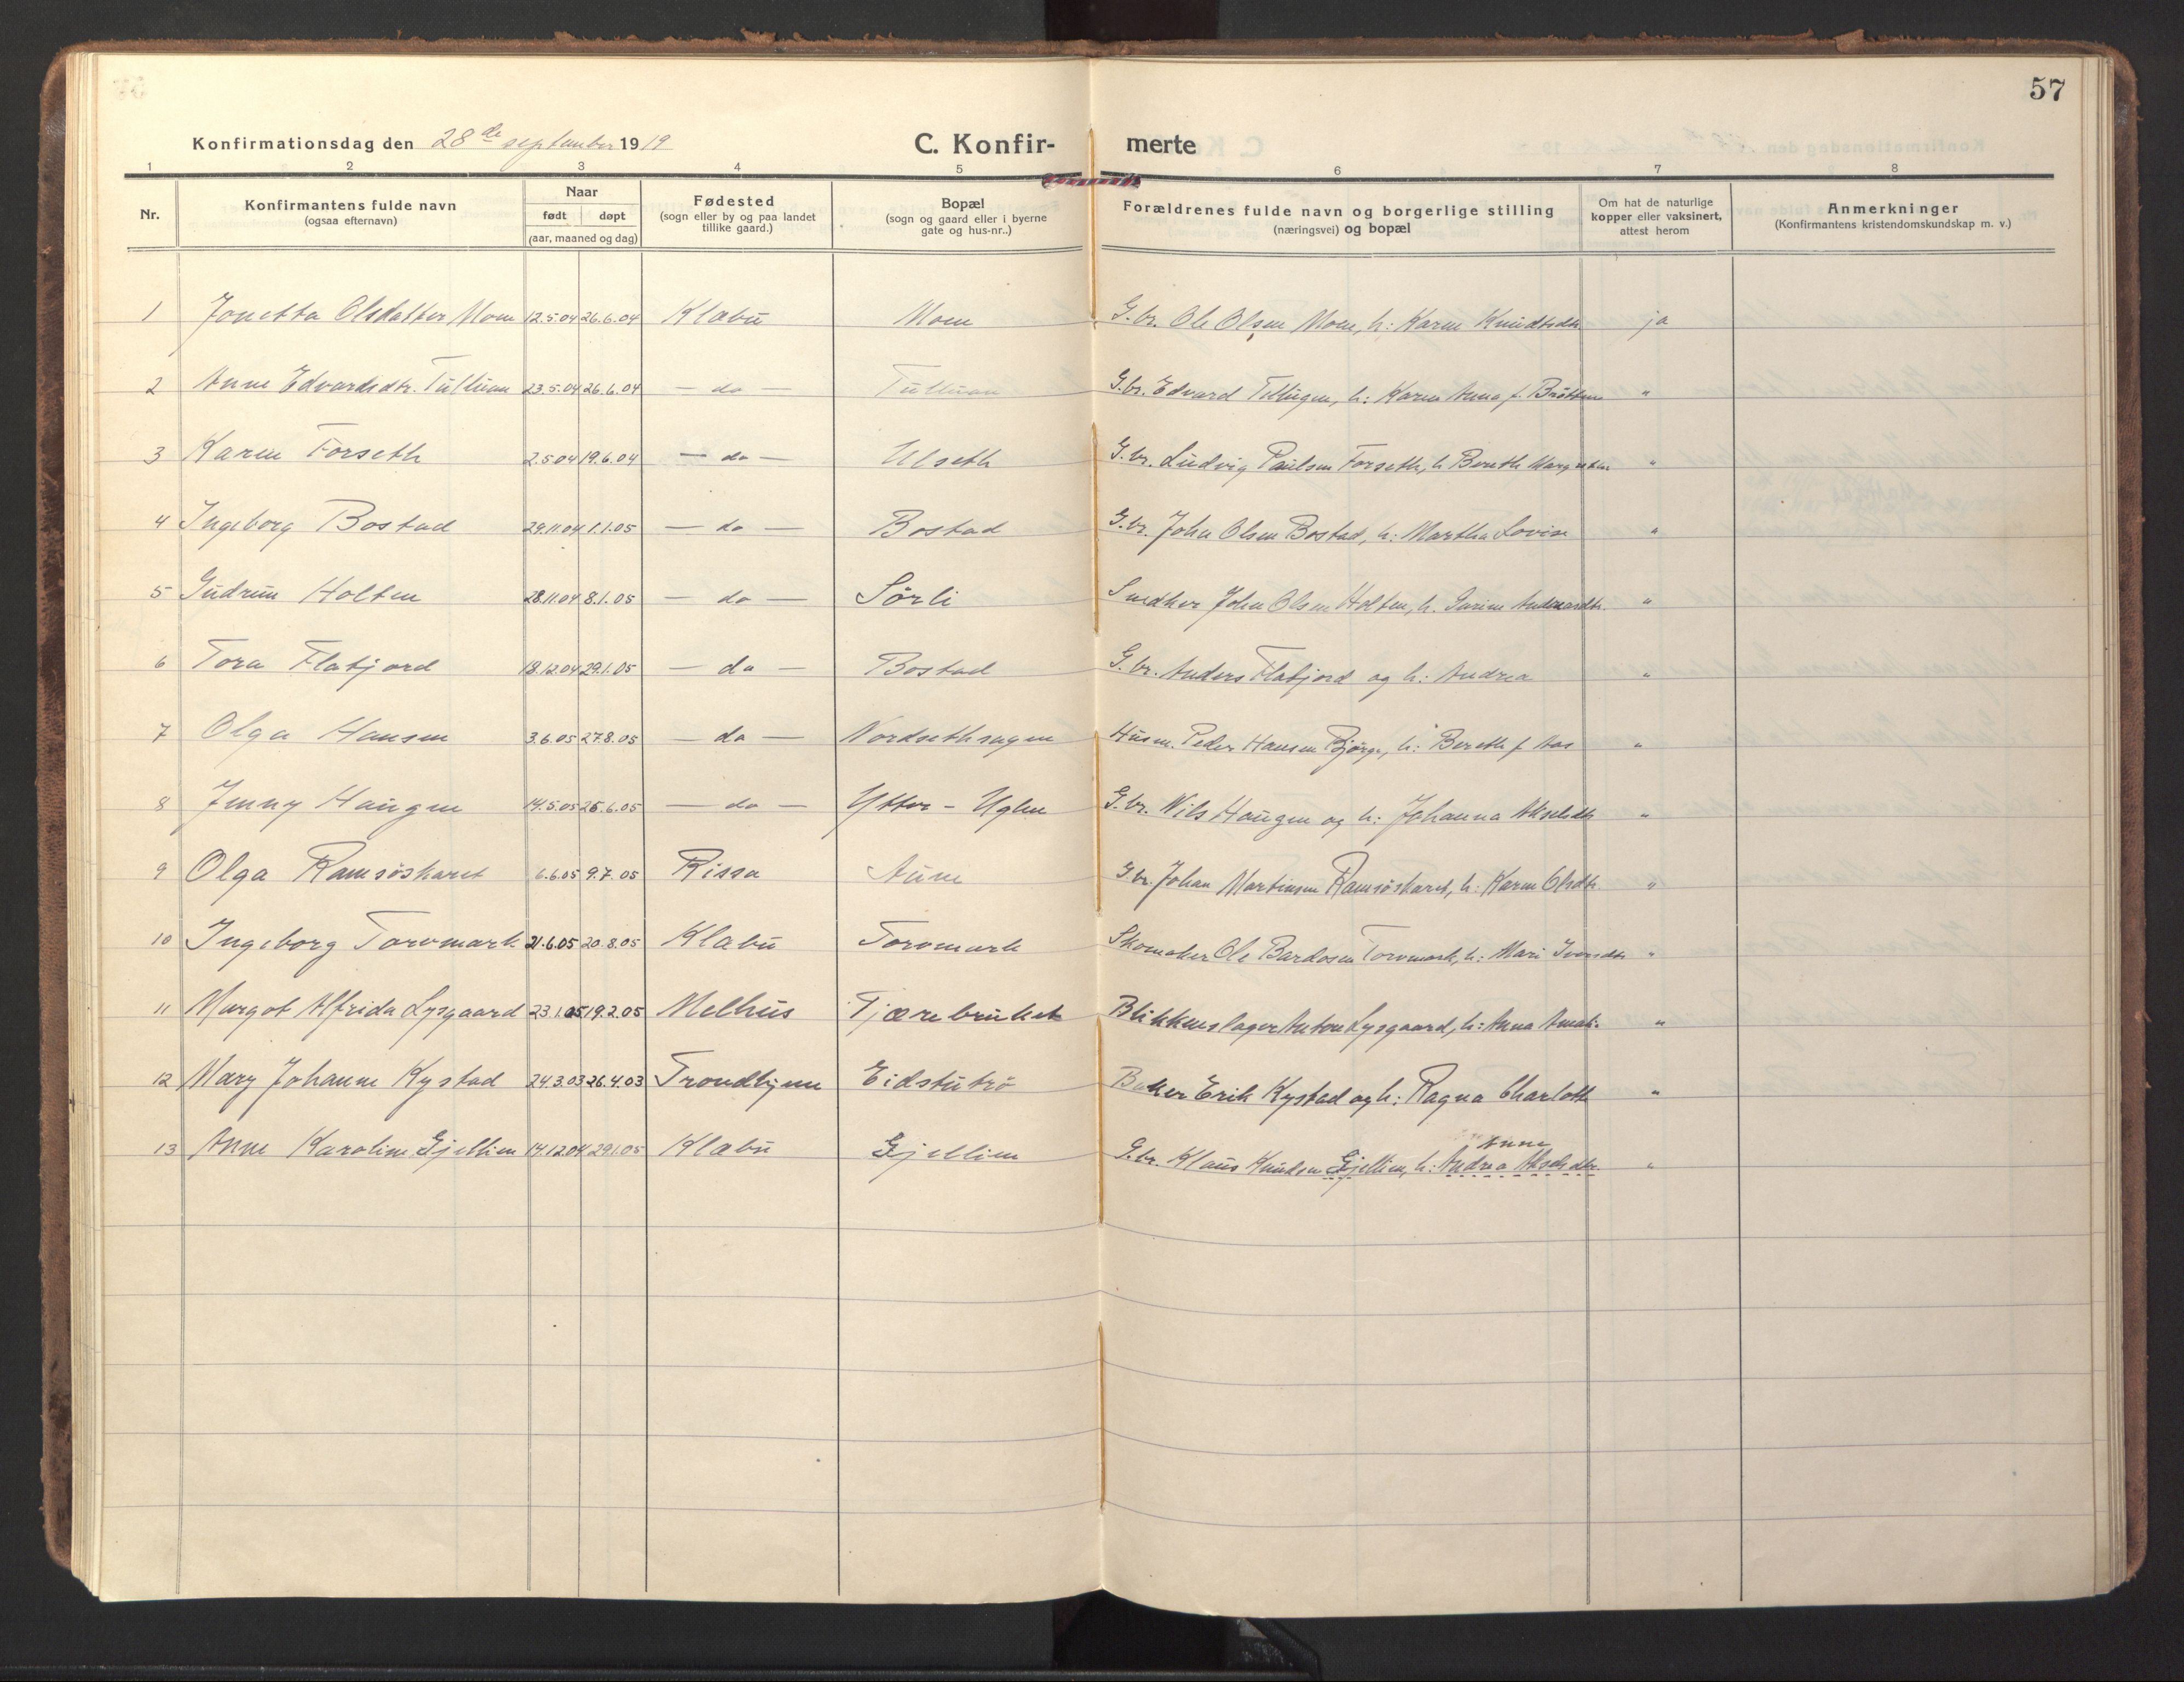 57
Konfirmationsdag den 28de september 1919 C. Konfir- merte
1 2 3 4 5 6 7 8
Nr. Konfirmantens fulde navn (ogsaa efternavn) Naar født døpt (aar, maaned og dag) Fødested (sogn eller by og paa landet tillike gaard.) Bopæl (sogn og gaard eller i byerne gate og hus-nr..) Forældrenes fulde navn og borgerlige stilling (næringsvei) og bopæl Om hat de naturlige kopper eller vaksinert, attest herom Anmerkninger (Konfirmantens kristendomskundskap m. v.)
1 Jonetta Olsdatter Moen 12.5.04 26.6.04 Klæbu Moen G.br. Ole Olsen Moen, h: Karen Knudtsdtr ja
2 Anne Edvardsdtr. Tulluan 23.5.04 26.6.04 — do — Tulluan G.br. Edvard Tellugen, h: Karen Anna f. Bråtten "
3 Karen Forseth 2.5.04 19.6.04 — do — Ulseth G.br. Ludvig Paulsen Forseth, h Bereth Margrethe "
4 Ingeborg Bostad 29.11.04 1.1.05 — do — Bostad G.br. John Olsen Bostad, h: Martha Lovise "
5 Gudrun Holten 28.11.04 8.1.05 — do — Sørli Snedker John Olsen Holten, h. Gurine Andreasdtr. "
6 Tora Flatjord 18.12.04 29.1.05 — do — Bostad G.br. Anders Flatjord og h: Andrea "
7 Olga Hansen 3.6.05 27.8.05 — do — Nordsethsagen Husm. Peder Hansen Bjørge, h: Bereth f Aas "
8 Jenny Haugen 14.5.05 25.6.05 — do — Ytter - Uglen G.br. Nils Haugen og h: Johanna Akselsdtr "
9 Olga Ramsøskaret 6.6.05 9.7.05 Rissa Aune G.br. Johan Martinsen Ramsøskaret, h: Karen Olsdtr. "
10 Ingeborg Torvmark 21.6.05 20.8.05 Klæbu Torvmark Skomaker Ole Bardosen Torvmark, h: Mari Iversdtr "
11 Margot Alfrida Lysgaard 23.1.05 19.2.05 Melhus Tjærebruket Blikkenslager Anton Lysgaard, h: Anna Amali. "
12 Mary Johanne Kystad 24.3.03 26.4.03 Trondhjem Eidstutrø Baker Erik Kystad og h: Ragna Charlotte "
13 Anne Karoline Gjellien 14.12.04 29.1.05 Klæbu Gjellien G.br. Klaus Knudsen Gjellien, h: Andrea Akselsdtr. "
Anne